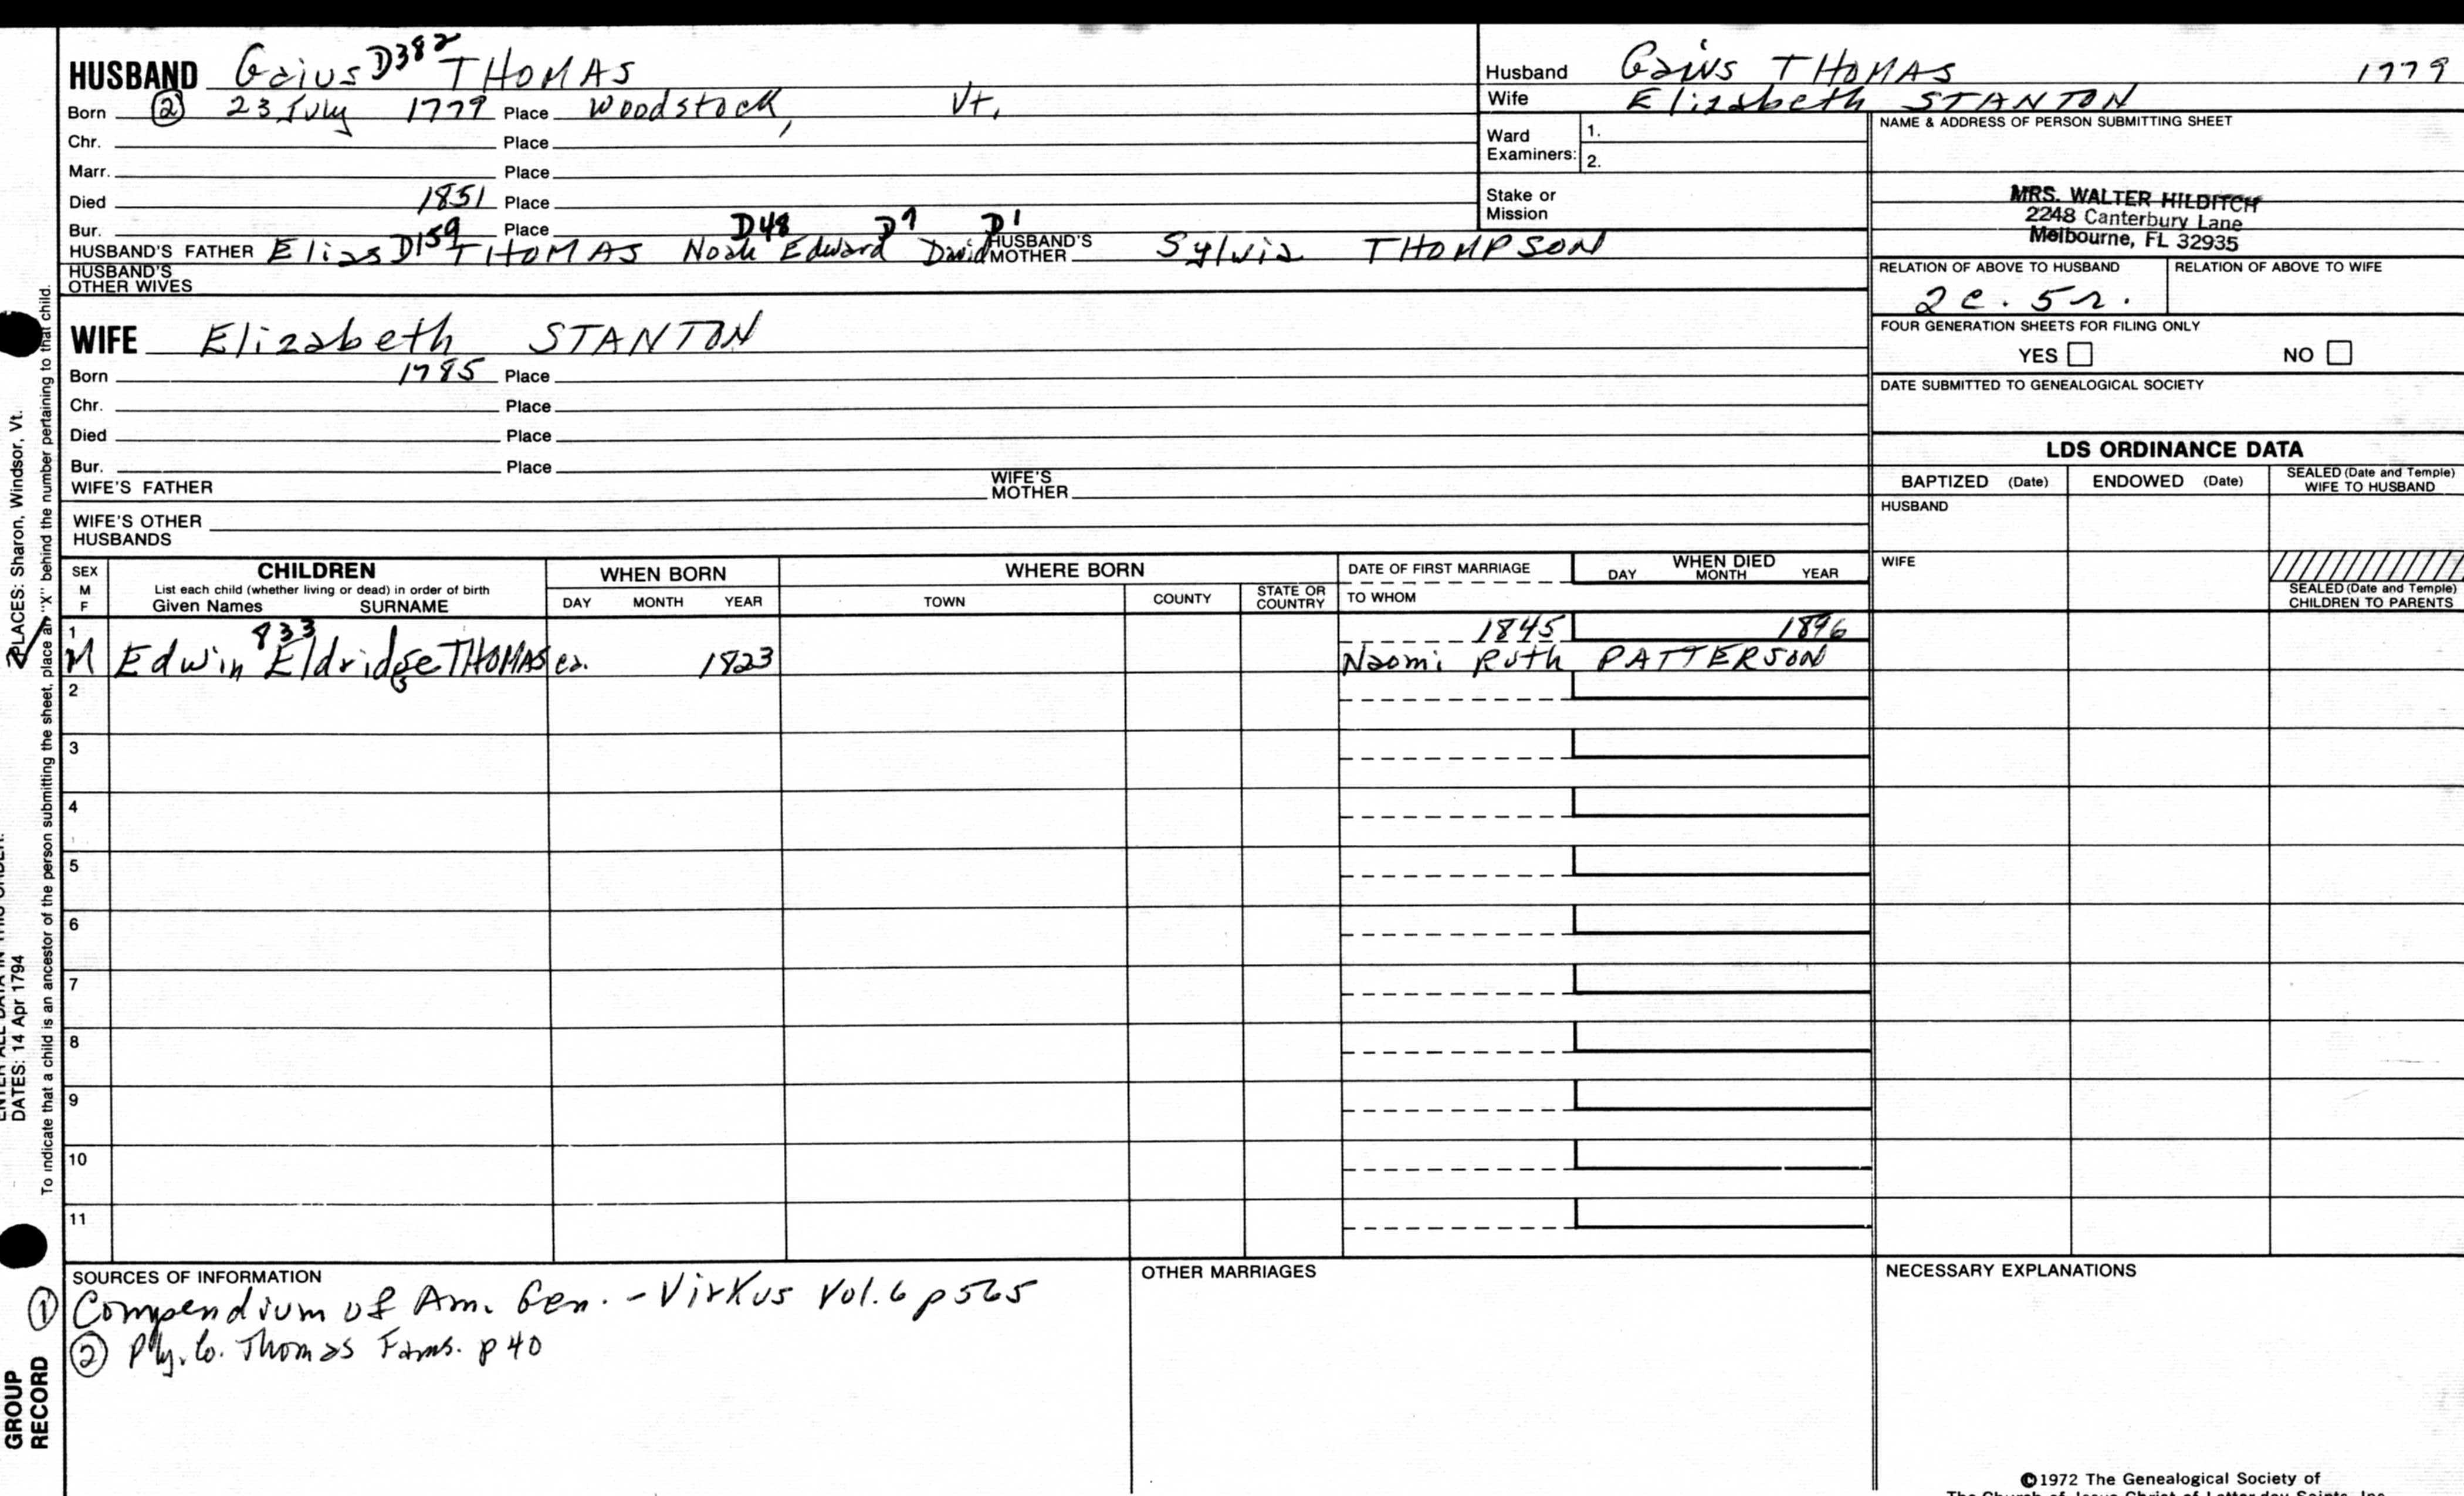 HUSBAND Gaius D382 THOMAS
Born ② 23 July 1779 Place Woodstock, Vt.
Chr. Place
Marr. Place
Died 1851 Place
Bur. Place
HUSBAND'S FATHER Elias D159 THOMAS Noah D48 Edward D9 David D1 HUSBAND'S MOTHER Sylvia THOMPSON
HUSBAND'S OTHER WIVES
WIFE Elizabeth STANTON
Born 1785 Place
Chr. Place
Died Place
Bur. Place
WIFE'S FATHER WIFE'S MOTHER
WIFE'S OTHER HUSBANDS
Husband Gaius THOMAS 1779
Wife Elizabeth STANTON
Ward Examiners: 1.
2.
Stake or Mission
NAME & ADDRESS OF PERSON SUBMITTING SHEET
MRS. WALTER HILDITCH
2248 Canterbury Lane
Melbourne, FL 32935
RELATION OF ABOVE TO HUSBAND RELATION OF ABOVE TO WIFE
2c. 5r.
FOUR GENERATION SHEETS FOR FILING ONLY
YES NO
DATE SUBMITTED TO GENEALOGICAL SOCIETY
LDS ORDINANCE DATA
BAPTIZED (Date) ENDOWED (Date) SEALED (Date and Temple) WIFE TO HUSBAND
HUSBAND
WIFE
SEALED (Date and Temple) CHILDREN TO PARENTS
SEX M F
CHILDREN
List each child (whether living or dead) in order of birth
Given Names SURNAME
WHEN BORN
DAY MONTH YEAR
WHERE BORN
TOWN COUNTY STATE OR COUNTRY
DATE OF FIRST MARRIAGE
TO WHOM
WHEN DIED
DAY MONTH YEAR
1 833 1845 1896
M Edwin Eldridge THOMAS ca. 1823 Naomi Ruth PATTERSON
2
3
4
5
6
7
8
9
10
11
SOURCES OF INFORMATION
① Compendium of Am. Gen. - Virkus Vol. 6 p 565
② Ply. Co. Thomas Fams. p 40
OTHER MARRIAGES
NECESSARY EXPLANATIONS
©1972 The Genealogical Society of
The Church of Jesus Christ of Latter-day Saints, Inc.
PLACES: Sharon, Windsor, Vt.
DATES: 14 Apr 1794
To indicate that a child is an ancestor of the person submitting the sheet, place an "X" behind the number pertaining to that child.
GROUP
RECORD